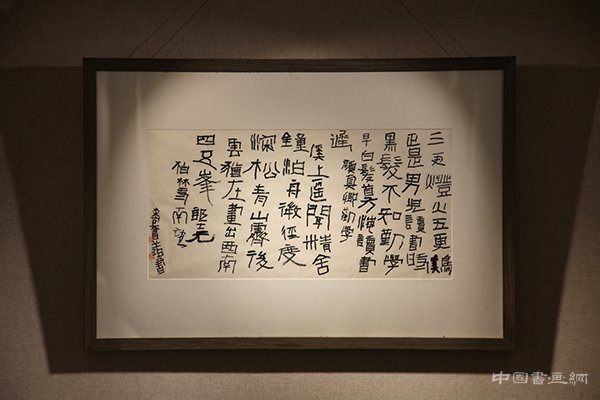 三更燈火五更鷄
正是男兒讀書時
黑髮不知勤學
早白髮方悔讀書
遲 顏真卿勤學
溪上遥聞精舍
鐘泊舟微徑度
深松青山霽後
雲猶在畫出西南
四五峯 郎士元
柏林寺南望
中国書画網